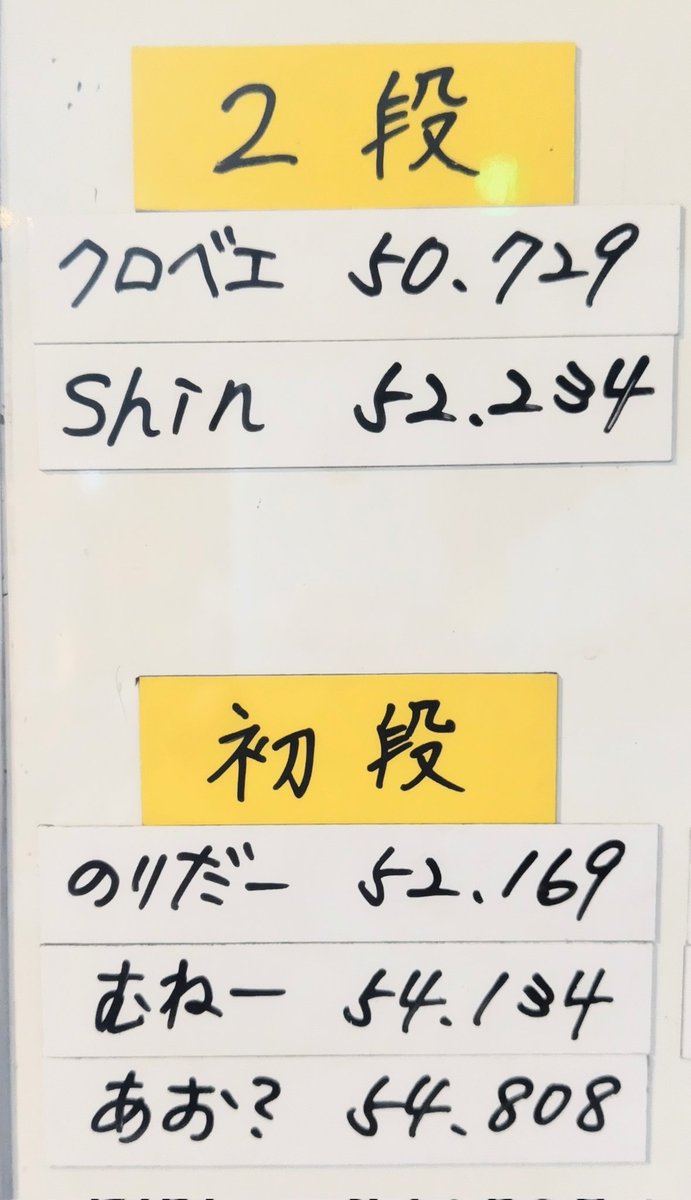 2段
クロベエ 50.729
Shin 52.234
初段
のりだー 52.169
むねー 54.134
あお? 54.808